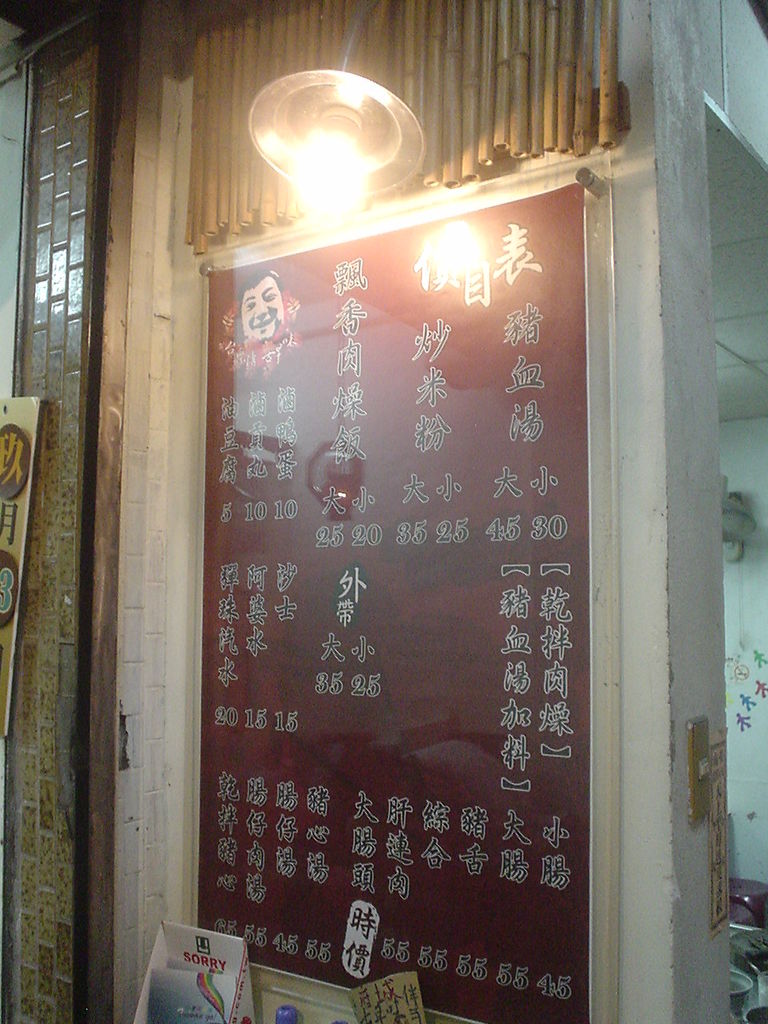 價目表
豬血湯 大 小
45 30
炒米粉 大 小
35 25
飄香肉燥飯 大 小
25 20
外帶 大 小
35 25
滷鴨蛋 10
滷貢丸 10
油豆腐 5
沙士 15
阿婆水 15
彈珠汽水 20
【乾拌肉燥】
【豬血湯加料】
小腸 45
大腸 55
豬舌 55
綜合 55
肝連肉 55
大腸頭 時價
豬心湯 55
腸仔湯 45
腸仔肉湯 55
乾拌豬心 65
玖月
3
SORRY